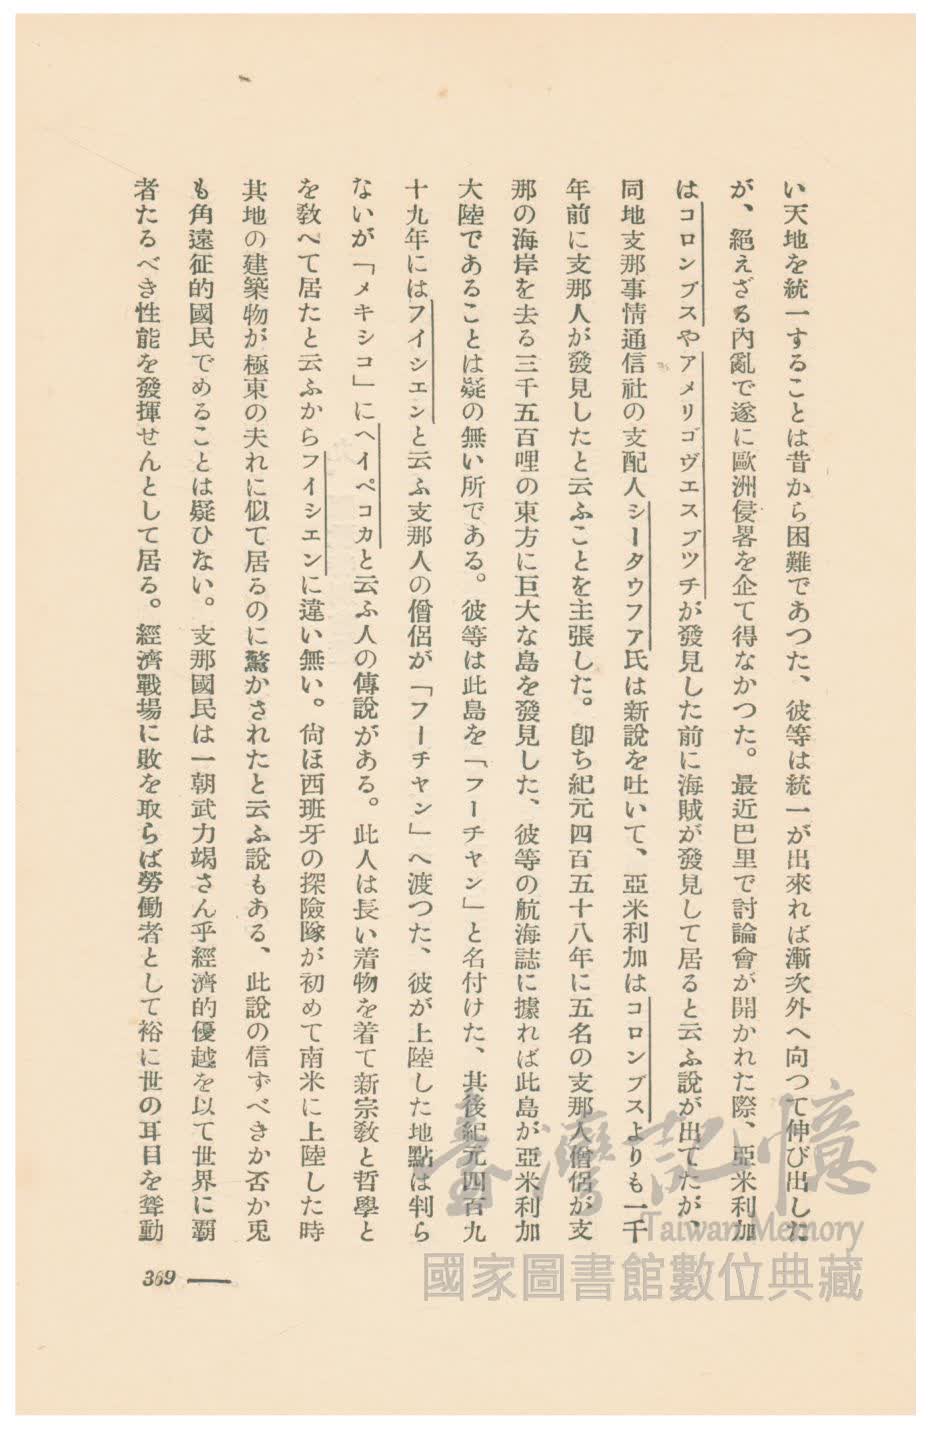 い天地を統一することは昔から困難であつた、彼等は統一が出來れば漸次外へ向つて伸び出した
が、絕えざる內亂で遂に歐洲侵畧を企て得なかつた。最近巴里で討論會が開かれた際、亞米利加
はコロンブスやアメリゴヴエスブツチが發見した前に海賊が發見して居ると云ふ說が出てたが、
同地支那事情通信社の支配人シータウフア氏は新說を吐いて、亞米利加はコロンブスよりも一千
年前に支那人が發見したと云ふことを主張した。卽ち紀元四百五十八年に五名の支那人僧侶が支
那の海岸を去る三千五百哩の東方に巨大な島を發見した、彼等の航海誌に據れば此島が亞米利加
大陸であることは疑の無い所である。彼等は此島を「フーチヤン」と名付けた、其後紀元四百九
十九年にはフイシエンと云ふ支那人の僧侶が「フーチヤン」へ渡つた、彼が上陸した地點は判ら
ないが「メキシコ」にヘイペコカと云ふ人の傳說がある。此人は長い着物を着て新宗敎と哲學と
を敎へて居たと云ふからフイシエンに違い無い。尙ほ西班牙の探險隊が初めて南米に上陸した時
其地の建築物が極東の夫れに似て居るのに驚かされたと云ふ說もある、此說の信ずべきか否か兎
も角遠征的國民でめることは疑ひない。支那國民は一朝武力竭さん乎經濟的優越を以て世界に覇
者たるべき性能を發揮せんとして居る。經濟戰場に敗を取らば勞働者として裕に世の耳目を聳動
369
臺灣記憶
Taiwan Memory
國家圖書館數位典藏